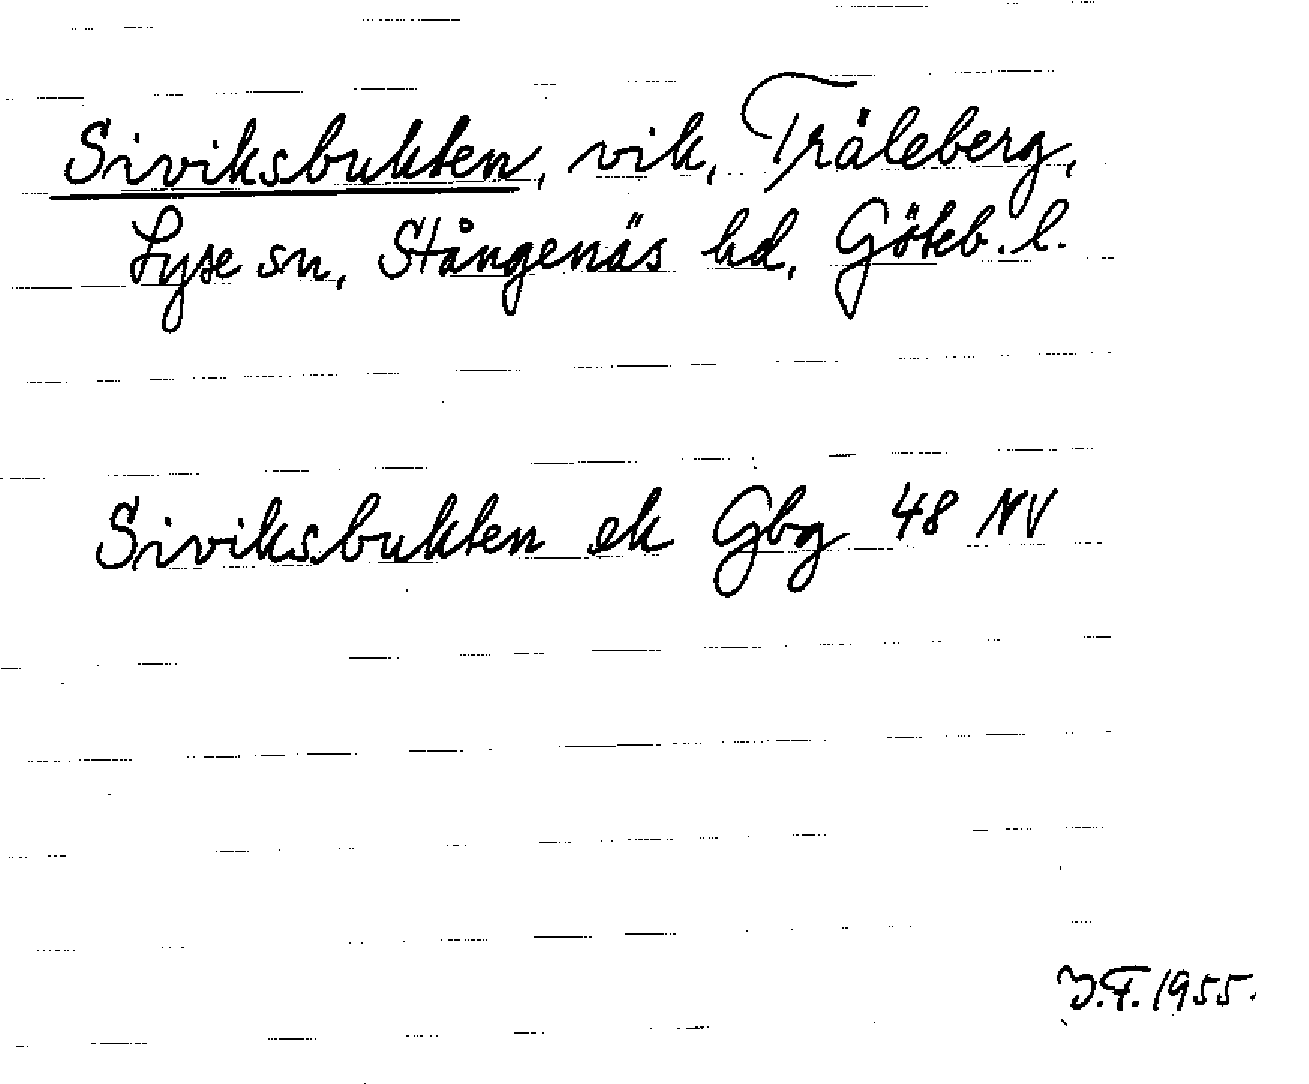 Siviksbukten, vik, Träleberg,
Lyse sn, Stångenäs hd, Göteb. l.
Siviksbukten ek Gbg 48 NV
J.F. 1955.